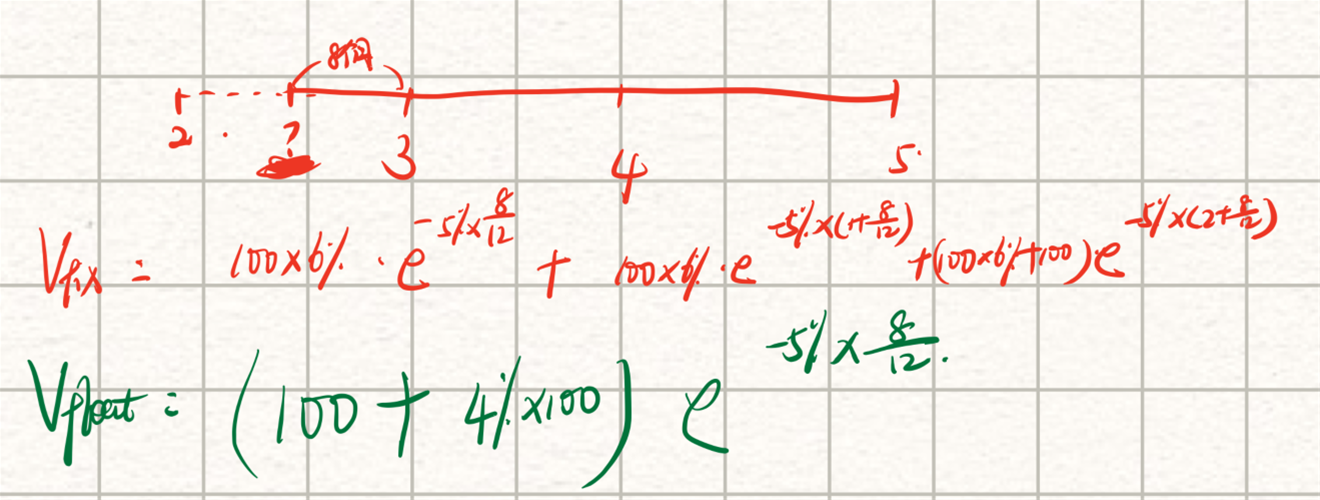 8个月
2 . ? 3 4 5.
V_{fix} = 100×6% · e^{-5%×\frac{8}{12}} + 100×6% · e^{-5%×(1+\frac{8}{12})} + (100×6%+100) e^{-5%×(2+\frac{8}{12})}
V_{float} = (100 + 4%×100) e^{-5%×\frac{8}{12}}.